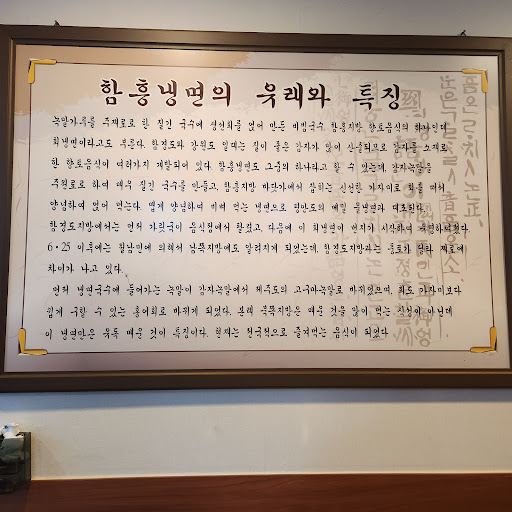 함흥냉면의 유래와 특징
녹말가루를 주재료로 한 질긴 국수에 생선회를 얹어 만든 비빔국수 함흥지방 향토음식의 하나인데
회냉면이라고도 부른다. 함경도와 강원도 일대는 질이 좋은 감자가 많이 산출되므로 감자를 소재로
한 향토음식이 여러가지 개발되어 있다. 함흥냉면도 그중의 하나라고 할 수 있는데, 감자녹말을
주원료로 하여 매우 질긴 국수를 만들고, 함흥지방 바닷가에서 잡히는 신선한 가자미로 회를 떠서
양념하여 얹어 먹는다. 맵게 양념하여 비벼 먹는 냉면으로 평양도의 메밀 물냉면과 대조된다.
함경도지방에서는 먼저 가릿국이 음식점에서 팔렸고, 다음에 이 회냉면이 번지기 시작하여
6·25 이후에는 월남민에 의해서 남쪽지방에도 알려지게 되었는데, 함경도지방과는 풍토가 달라 재료에
차이가 나고 있다.
먼저 냉면국수에 들어가는 녹말이 감자녹말에서 제주도의 고구마녹말로 바뀌었으며, 회도 가자미보다
쉽게 구할 수 있는 홍어회로 바뀌게 되었다. 본래 북쪽지방은 매운 것을 많이 먹는 식성이 아닌데
이 냉면만은 유독 매운 것이 특징이다. 현재는 전국적으로 즐겨먹는 음식이 되었다.